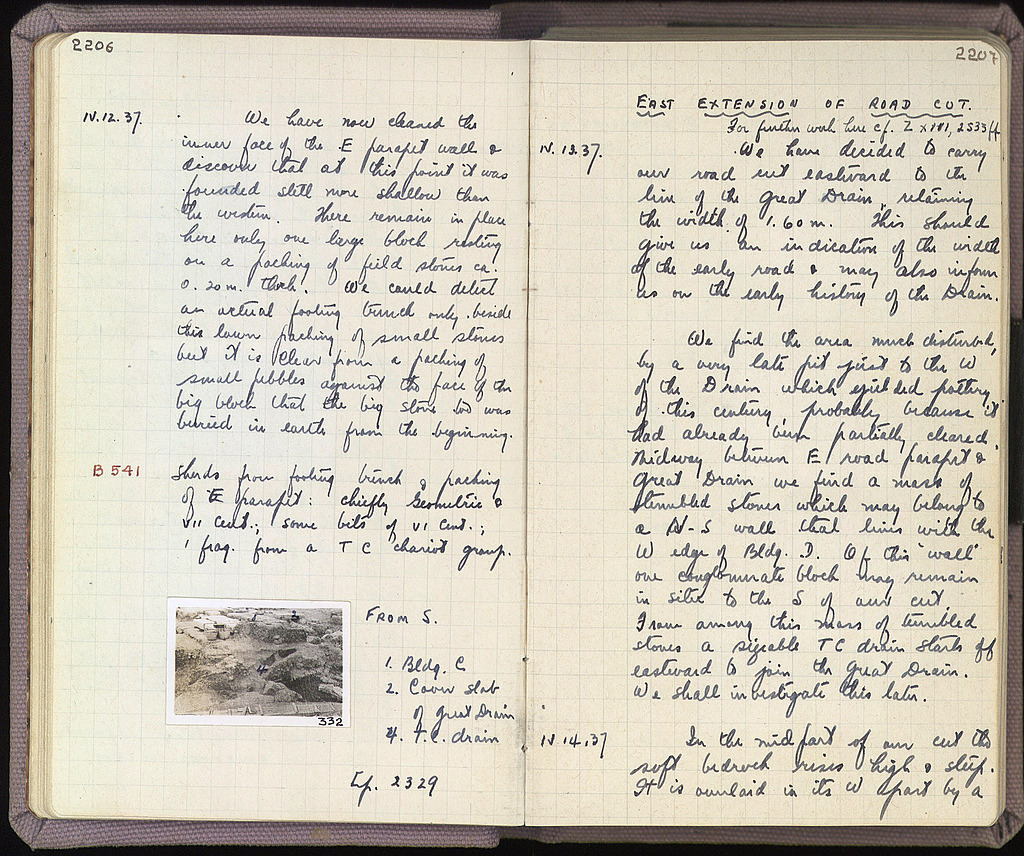 2206
IV.12.37.
We have now cleared the
inner face of the E parapet wall &
discover that at this point it was
founded still more shallow than
the western. There remain in place
here only one large block resting
on a packing of field stones ca.
0.20 m. thick. We could detect
an actual footing trench only beside
this lower packing of small stones
but it is clear from a packing of
small pebbles against the face of the
big block that the big stone too was
buried in earth from the beginning.
B 541
Sherds from footing trench & packing
of E parapet: chiefly Geometric &
VII cent.; some bits of VI cent.;
1 frag. from a TC chariot group.
332
FROM S.
1. Bldg. C
2. Cover slab
of Great Drain
4. T.C. drain
2329
2207
EAST EXTENSION OF ROAD CUT.
For further work here cf. Z XIII, 2533 ff
IV. 13.37.
We have decided to carry
our road cut eastward to the
line of the Great Drain, retaining
the width of 1.60 m. This should
give us an indication of the width
of the early road & may also inform
us on the early history of the Drain.
We find the area much disturbed,
by a very late pit just to the W
of the Drain which yielded pottery
of this century, probably because it
had already been partially cleared.
Midway between E road parapet &
Great Drain we find a mass of
tumbled stones which may belong to
a N-S wall that lines with the
W edge of Bldg. D. Of this "wall"
one conglomerate block may remain
in situ to the S of our cut.
From among this mass of tumbled
stones a sizeable TC drain starts off
eastward to join the Great Drain.
We shall investigate this later.
IV 14.37
In the mid part of our cut the
soft bedrock rises high & steep.
It is overlaid in its W part by a